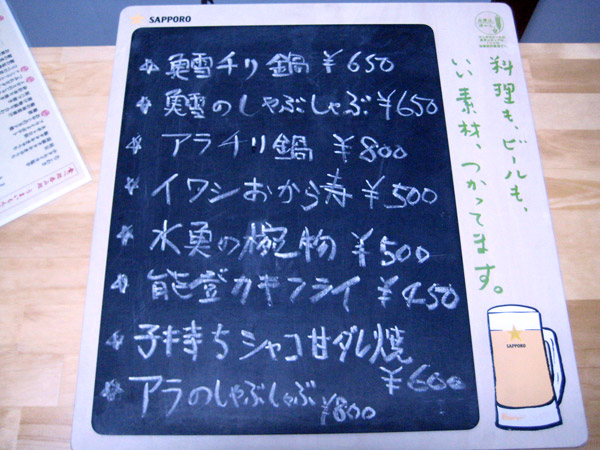 SAPPORO
☆ 鱈チリ鍋 ¥650
☆ 鱈のしゃぶしゃぶ ¥650
☆ アラチリ鍋 ¥800
☆ イワシおから寿 ¥500
☆ 水勇の椀物 ¥500
☆ 能登カキフライ ¥450
☆ 子持ちシャコ甘ダレ焼 ¥600
☆ アラのしゃぶしゃぶ ¥800
料理も、ビールも、
いい素材、つかってます。
SAPPORO